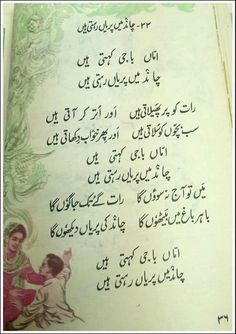 ۳۳۔ چاند میں پریاں رہتی ہیں
امّاں باجی کہتی ہیں
چاند میں پریاں رہتی ہیں
رات کو پر پھیلاتی ہیں اور اُتر کر آتی ہیں
سب بچّوں کو سُلاتی ہیں اور پھر خواب دکھاتی ہیں
امّاں باجی کہتی ہیں
چاند میں پریاں رہتی ہیں
میں تو آج نہ سوؤں گا رات گئے تک جاگوں گا
باہر باغ میں بیٹھوں گا چاند کی پریاں دیکھوں گا
امّاں باجی کہتی ہیں
چاند میں پریاں رہتی ہیں
۳۶